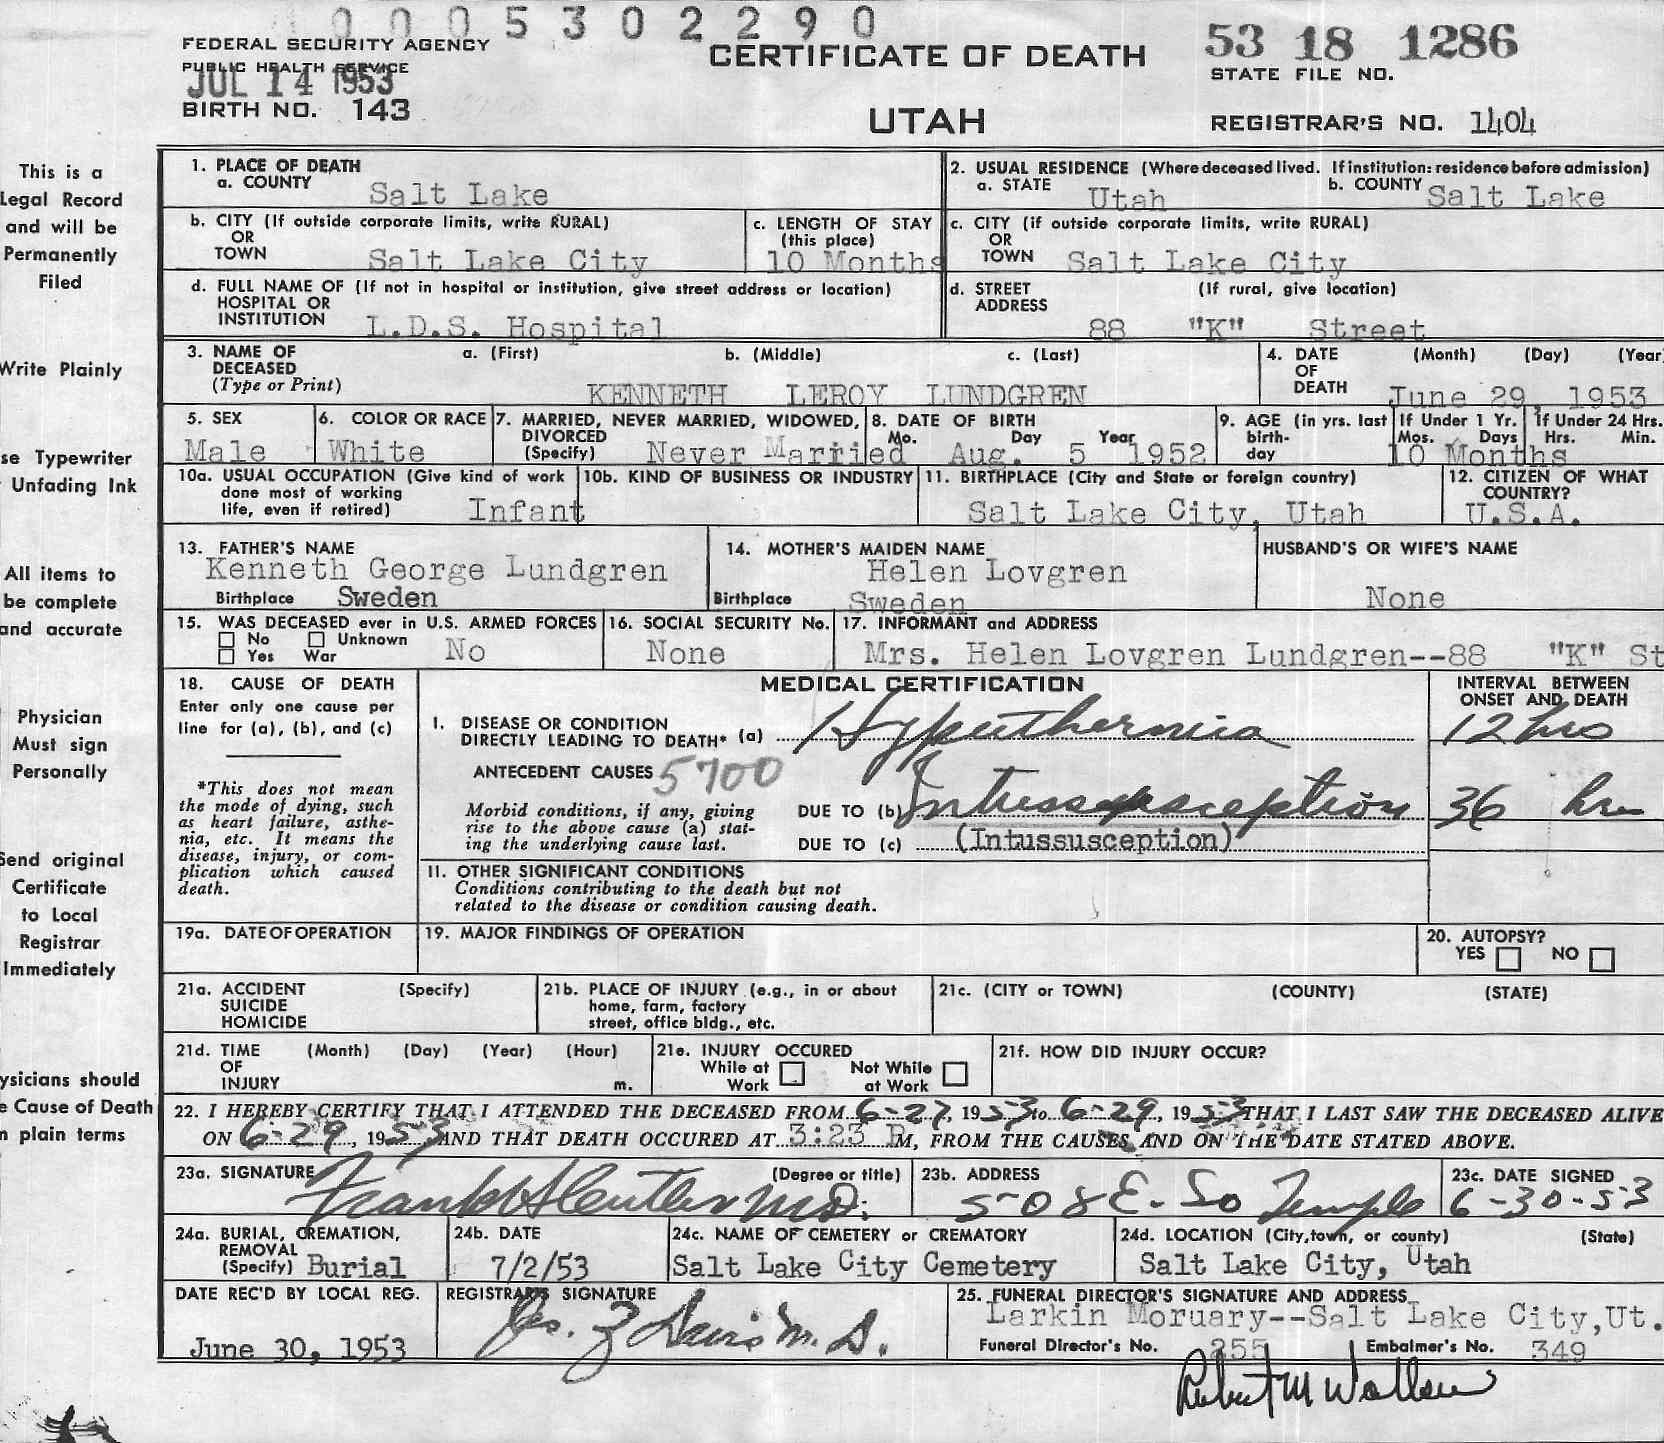 0005302290
FEDERAL SECURITY AGENCY
PUBLIC HEALTH SERVICE
JUL 14 1953
BIRTH NO. 143
CERTIFICATE OF DEATH
UTAH
53 18 1286
STATE FILE NO.
REGISTRAR'S NO. 1404
This is a
Legal Record
and will be
Permanently
Filed
Write Plainly
se Typewriter
Unfading Ink
All items to
be complete
and accurate
Physician
Must sign
Personally
Send original
Certificate
to Local
Registrar
Immediately
ysicians should
e Cause of Death
n plain terms
1. PLACE OF DEATH
a. COUNTY Salt Lake
2. USUAL RESIDENCE (Where deceased lived. If institution: residence before admission)
a. STATE Utah b. COUNTY Salt Lake
b. CITY (If outside corporate limits, write RURAL)
OR
TOWN Salt Lake City
c. LENGTH OF STAY
(this place)
10 Months
c. CITY (if outside corporate limits, write RURAL)
OR
TOWN Salt Lake City
d. FULL NAME OF (If not in hospital or institution, give street address or location)
HOSPITAL OR
INSTITUTION L.D.S. Hospital
d. STREET (If rural, give location)
ADDRESS
88 "K" Street
3. NAME OF a. (First) b. (Middle) c. (Last)
DECEASED
(Type or Print) KENNETH LEROY LUNDGREN
4. DATE (Month) (Day) (Year
OF
DEATH June 29, 1953
5. SEX
Male
6. COLOR OR RACE
White
7. MARRIED, NEVER MARRIED, WIDOWED,
DIVORCED
(Specify) Never Married
8. DATE OF BIRTH
Mo. Day Year
Aug. 5 1952
9. AGE (in yrs. last
birth-
day
If Under 1 Yr.
Mos. Days
If Under 24 Hrs.
Hrs. Min.
10 Months
10a. USUAL OCCUPATION (Give kind of work
done most of working
life, even if retired) Infant
10b. KIND OF BUSINESS OR INDUSTRY
11. BIRTHPLACE (City and State or foreign country)
Salt Lake City, Utah
12. CITIZEN OF WHAT
COUNTRY?
U.S.A.
13. FATHER'S NAME
Kenneth George Lundgren
Birthplace Sweden
14. MOTHER'S MAIDEN NAME
Helen Lovgren
Birthplace Sweden
HUSBAND'S OR WIFE'S NAME
None
15. WAS DECEASED ever in U.S. ARMED FORCES
No Unknown
Yes War No
16. SOCIAL SECURITY No.
None
17. INFORMANT and ADDRESS
Mrs. Helen Lovgren Lundgren--88 "K" St
18. CAUSE OF DEATH
Enter only one cause per
line for (a), (b), and (c)
*This does not mean
the mode of dying, such
as heart failure, asthe-
nia, etc. It means the
disease, injury, or com-
plication which caused
death.
MEDICAL CERTIFICATION
INTERVAL BETWEEN
ONSET AND DEATH
I. DISEASE OR CONDITION
DIRECTLY LEADING TO DEATH* (a) Hyperthermia 12 hrs
ANTECEDENT CAUSES 5700
Morbid conditions, if any, giving
rise to the above cause (a) stat-
ing the underlying cause last.
DUE TO (b) 36 hrs
DUE TO (c) (Intussusception)
11. OTHER SIGNIFICANT CONDITIONS
Conditions contributing to the death but not
related to the disease or condition causing death.
19a. DATE OF OPERATION
19. MAJOR FINDINGS OF OPERATION
20. AUTOPSY?
YES NO
21a. ACCIDENT (Specify)
SUICIDE
HOMICIDE
21b. PLACE OF INJURY (e.g., in or about
home, farm, factory
street, office bldg., etc.
21c. (CITY or TOWN) (COUNTY) (STATE)
21d. TIME (Month) (Day) (Year) (Hour)
OF
INJURY m.
21e. INJURY OCCURED
While at Not While
Work at Work
21f. HOW DID INJURY OCCUR?
22. I HEREBY CERTIFY THAT I ATTENDED THE DECEASED FROM 6-27, 1953 to 6-29, 1953 THAT I LAST SAW THE DECEASED ALIVE
ON 6-29, 1953 AND THAT DEATH OCCURED AT 3:23 P M, FROM THE CAUSES AND ON THE DATE STATED ABOVE.
23a. SIGNATURE (Degree or title)
Frank M.D.
23b. ADDRESS
508 E. So Temple
23c. DATE SIGNED
6-30-53
24a. BURIAL, CREMATION,
REMOVAL
(Specify) Burial
24b. DATE
7/2/53
24c. NAME OF CEMETERY or CREMATORY
Salt Lake City Cemetery
24d. LOCATION (City,town, or county) (State)
Salt Lake City, Utah
DATE REC'D BY LOCAL REG.
June 30, 1953
REGISTRAR'S SIGNATURE
Davis M.D.
25. FUNERAL DIRECTOR'S SIGNATURE AND ADDRESS
Larkin Moruary--Salt Lake City,Ut.
Funeral Director's No. 255 Embalmer's No. 349
Robert M